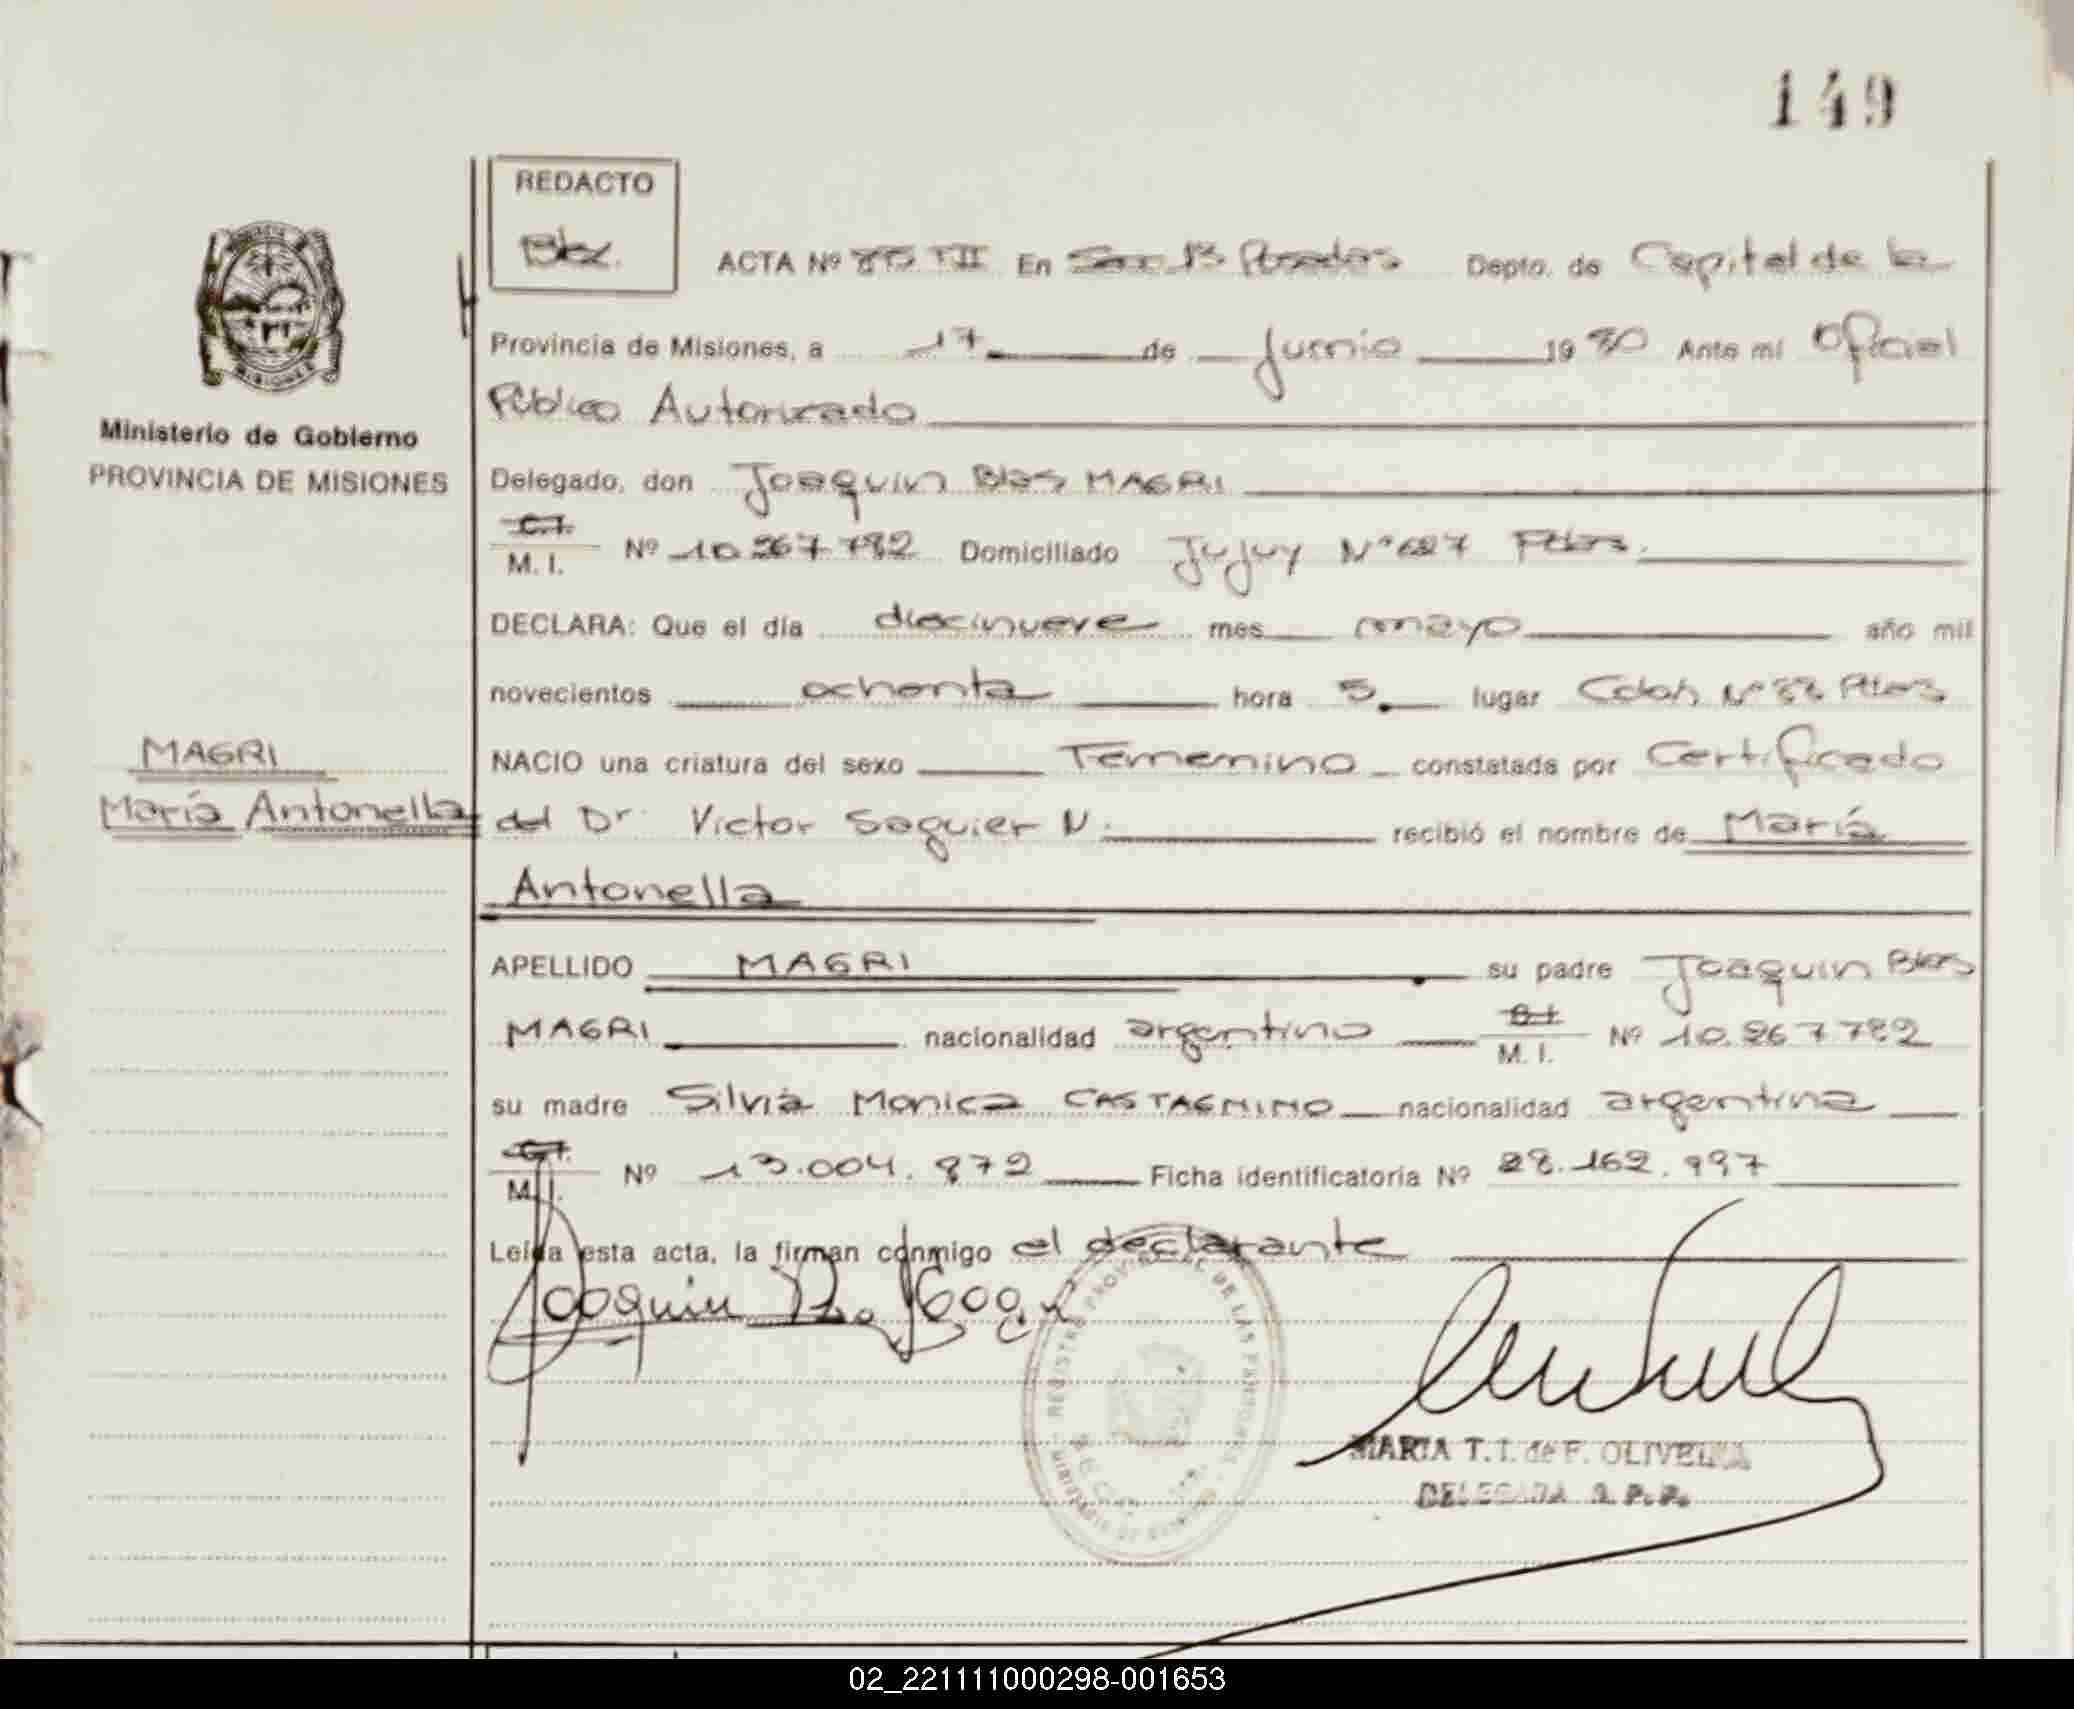 149
REDACTO
ACTA Nº TII En Sec. 1ª Posadas Depto. de Capital de la
Provincia de Misiones, a 17 de Junio 1980 Ante mi Oficial
Público Autorizado
Ministerio de Gobierno
PROVINCIA DE MISIONES
Delegado, don Joaquin Blas MAGRI
C.I.
M. I. Nº 10.267.782 Domiciliado Jujuy Nº 627 Pdas.
DECLARA: Que el día diecinueve mes mayo año mil
novecientos ochenta hora 5. lugar Colon Nº Pdas
MAGRI
NACIO una criatura del sexo Femenino constatada por Certificado
María Antonella
del Dr. Victor Saguier N. recibió el nombre de María
Antonella
APELLIDO MAGRI su padre Joaquin Blas
MAGRI nacionalidad argentino C.I. M. I. Nº 10.267.782
su madre Silvia Monica CASTAGNINO nacionalidad argentina
C.I.
M. I. Nº 13.004.872 Ficha identificatoria Nº 28.162.997
Leída esta acta, la firman conmigo el declarante
Joaquin
REGISTRO PROVINCIAL DE LAS PERSONAS
MARIA T. I. de F. OLIVEIRA
DELEGADA R. P. P.
02_221111000298-001653